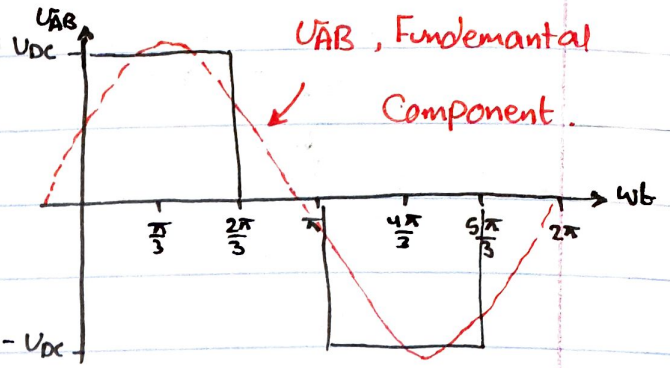 UAB
UDC
UAB, Fundemantal
Component.
π/3
2π/3
π
4π/3
5π/3
2π
wt
- UDC